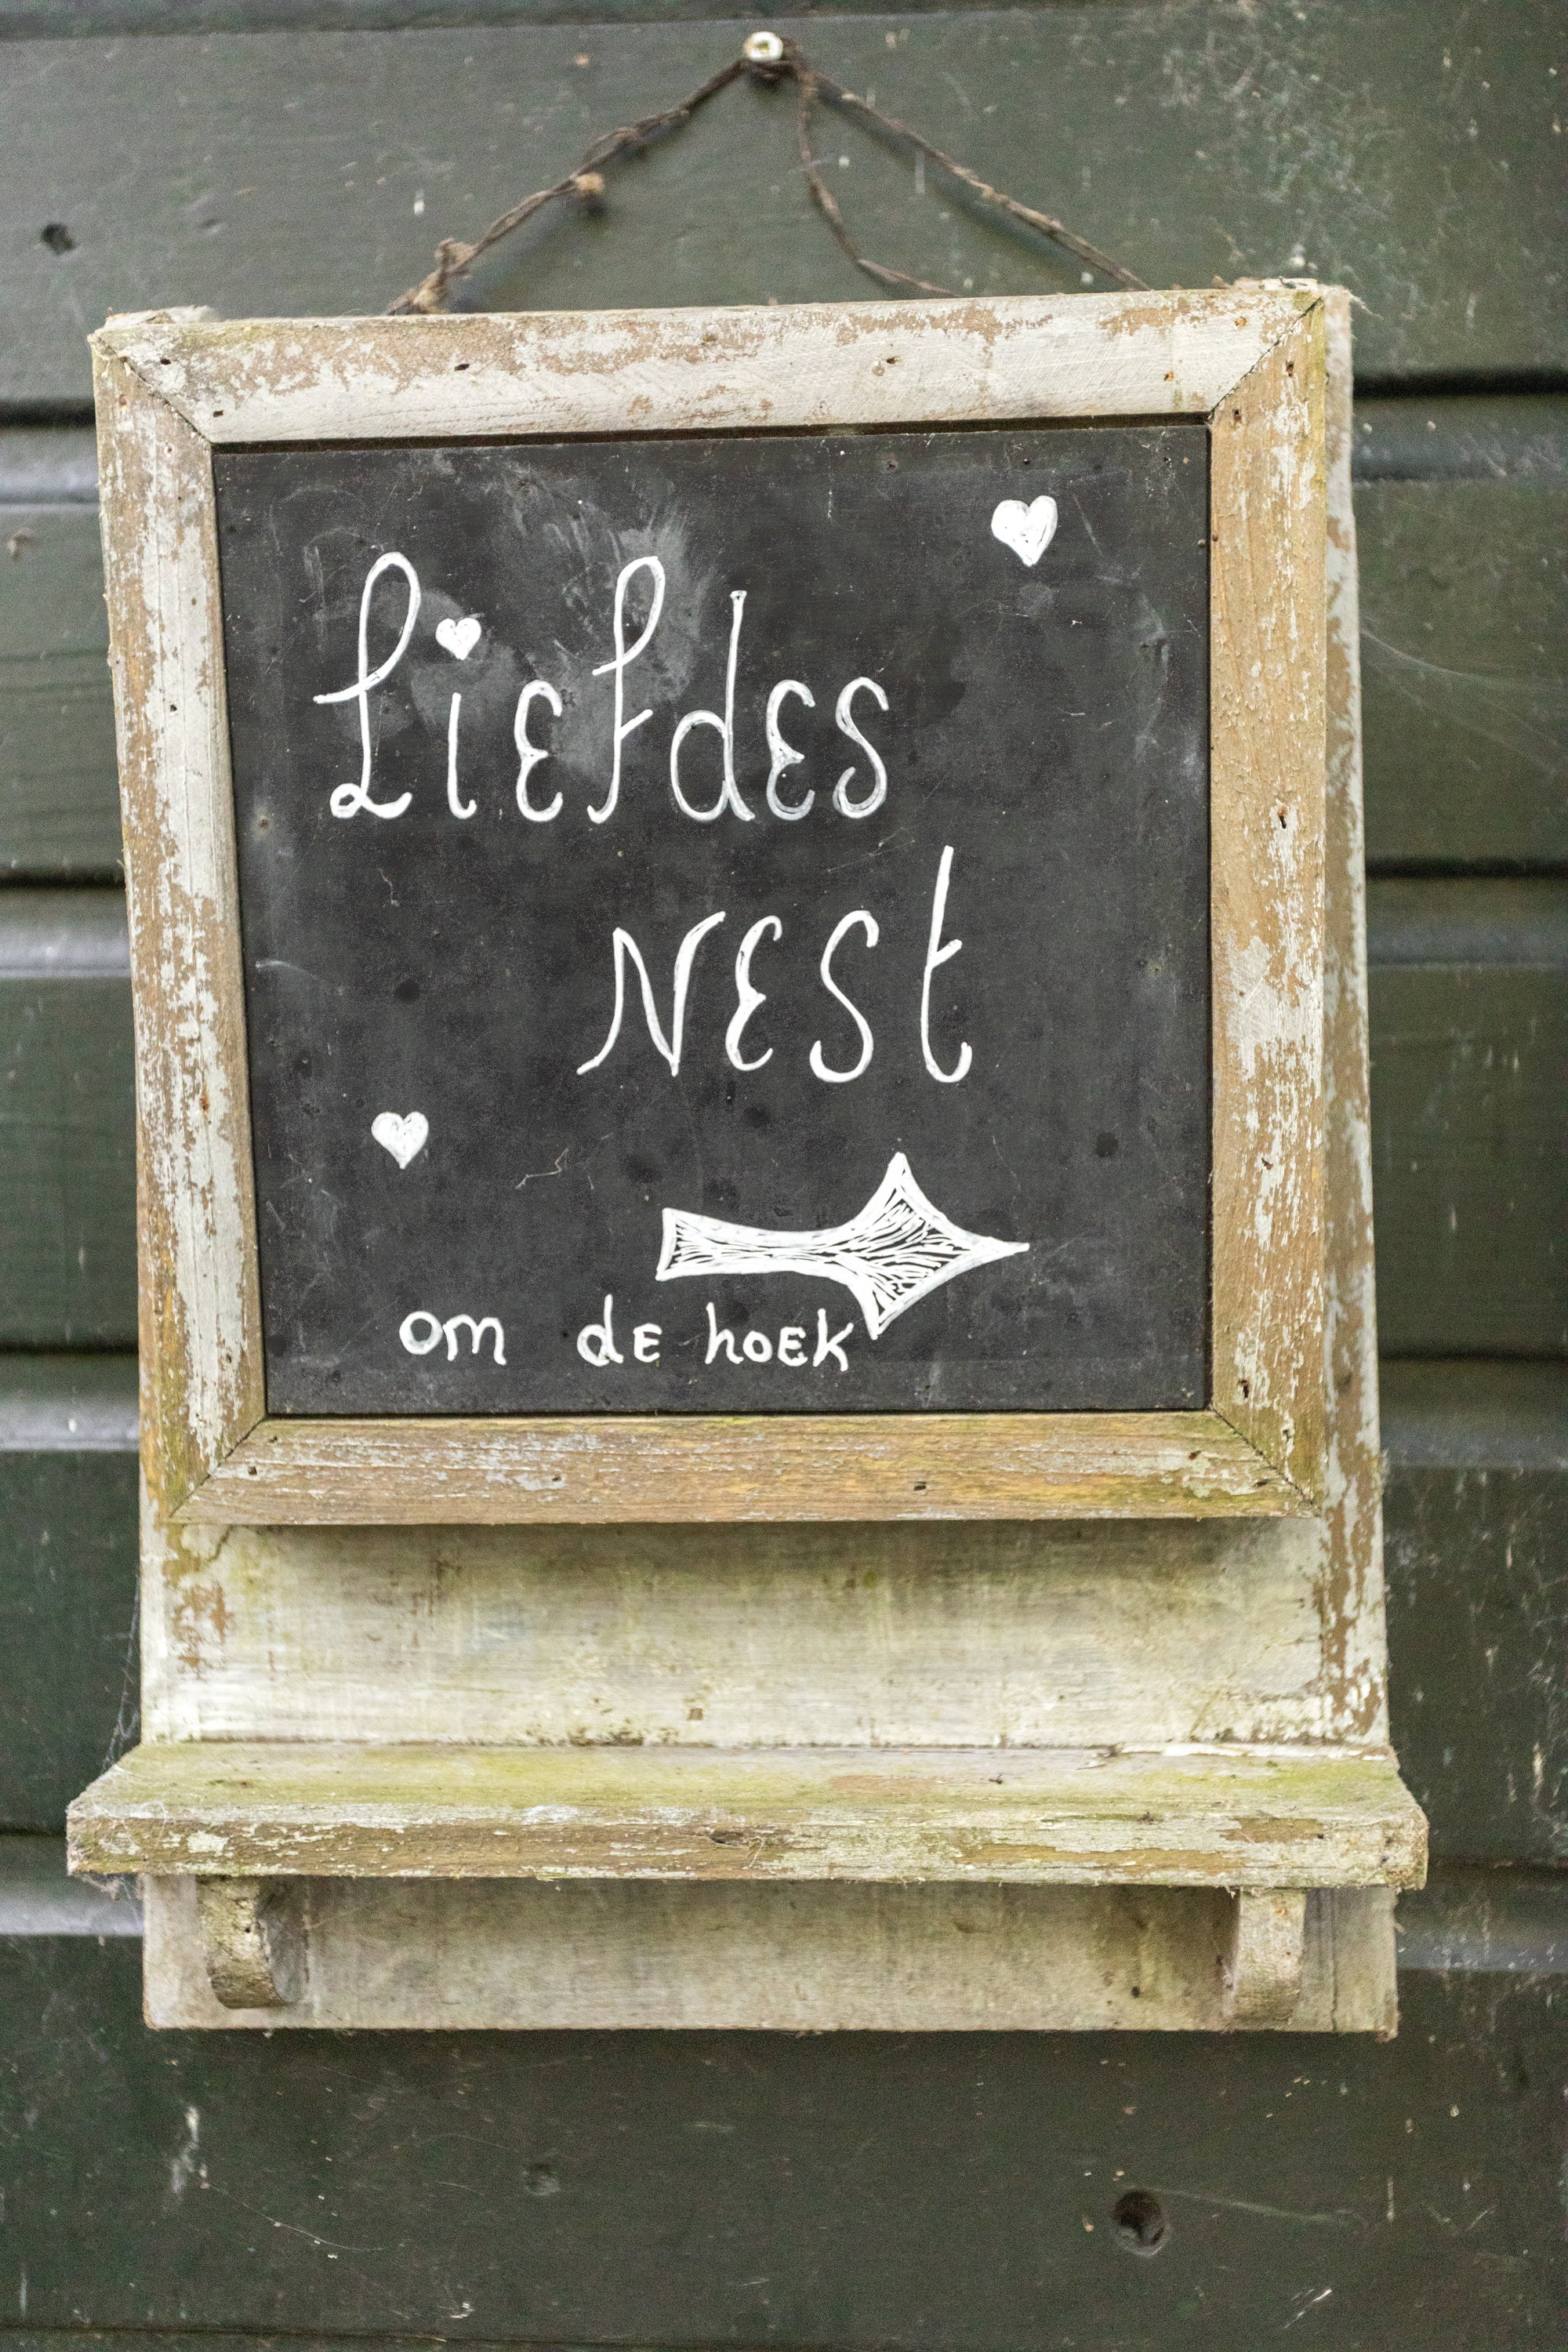 Liefdes
Nest
om de hoek